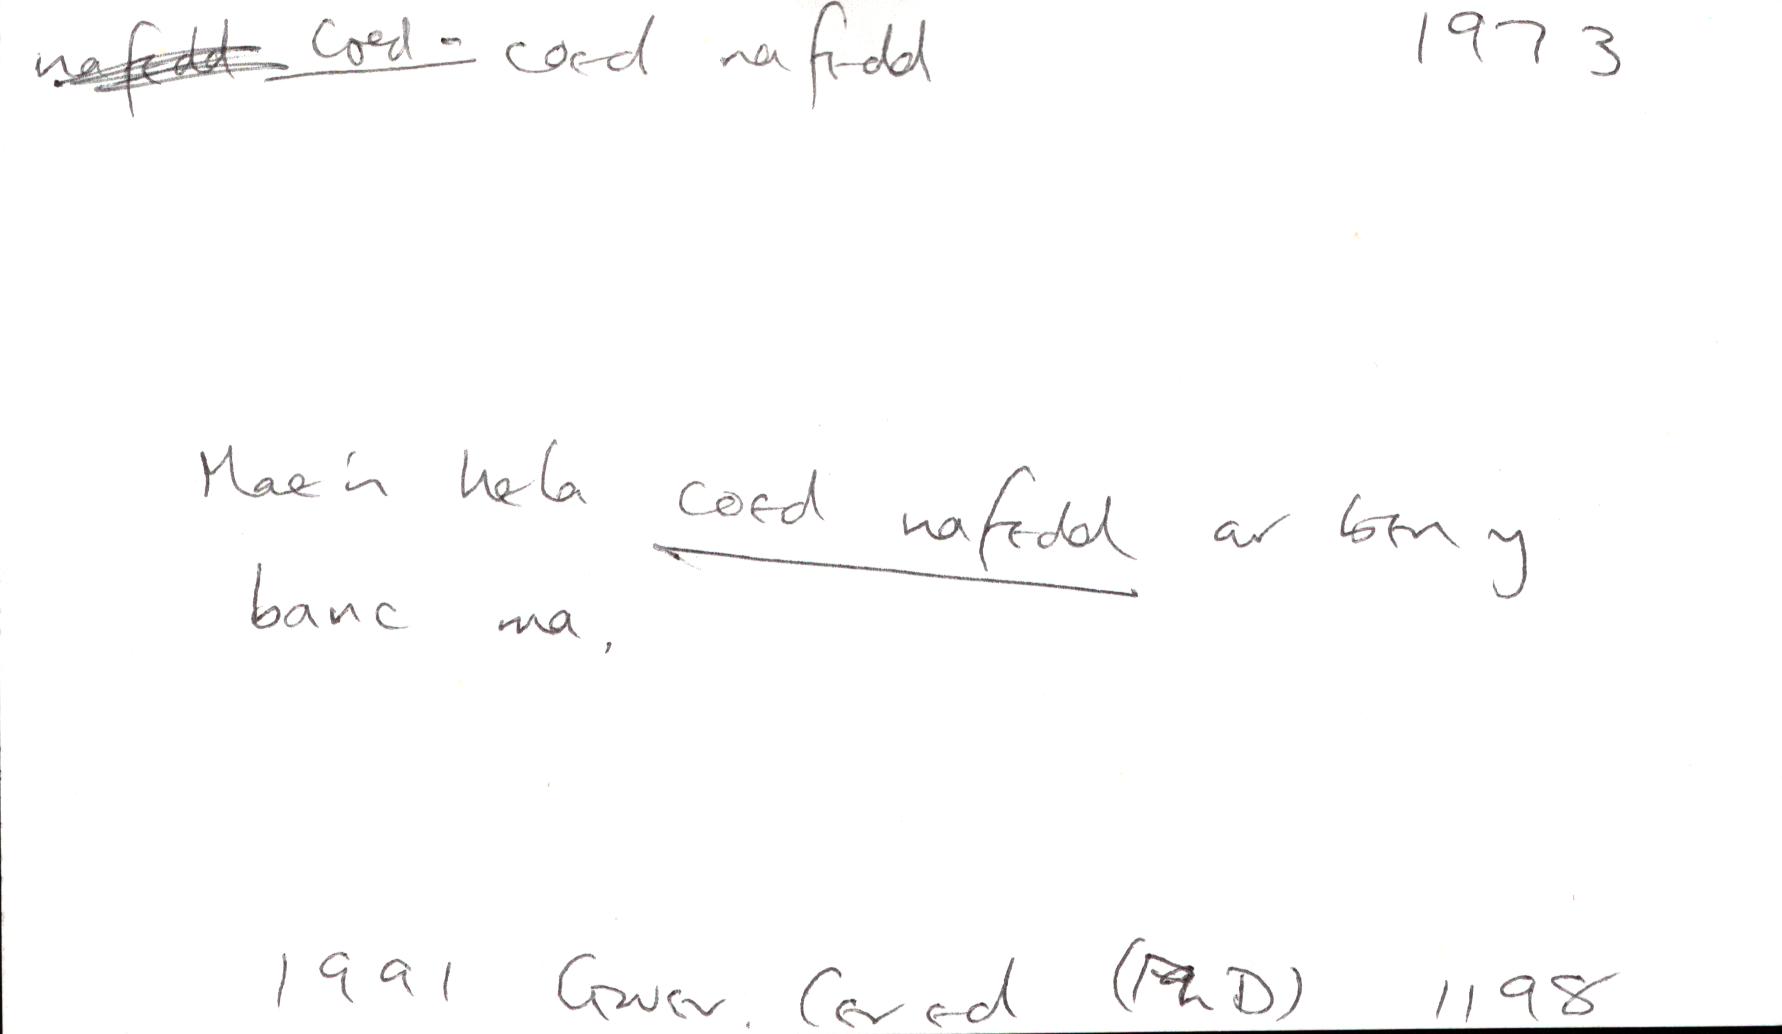 nafedd Coed - coed nafedd 1973
Mae'n hela coed nafedd ar ben y
banc ma.
1991 Gwer. Cered (PhD) 1198